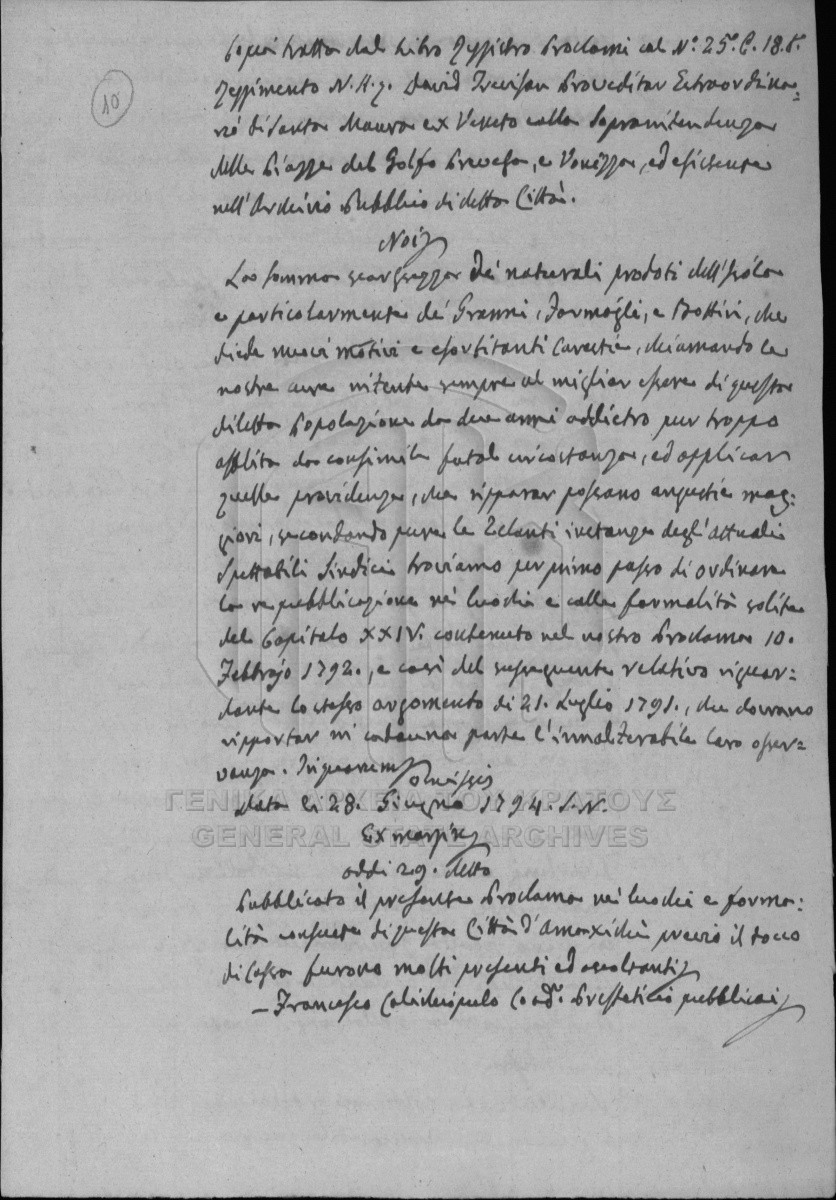 10
Copia tratta dal Libro Reggistro Proclami al N.º 25º C. 18. tº
Reggimento N. H. z. David Trevisan Proveditor Extraordina=
rio di Santa Maura ex Veneto colla Sopraintendenza
delle Piazze del Golfo Prevesa, e Vonizza, ed esistente
nell'Archivio Pubblico di detta Città.
Noi
La somma scarsezza de' naturali prodoti dell'Isola
e particolarmente de' Granni, Formogli, e Bottiri, che
diede nuovi motivi e esorbitanti Carestie, chiamando le
nostre cure intente sempre al miglior essere di questa
diletta Popolazione da due anni addietro pur troppo
afflita da consimile fatal circostanza, ed applicar
quelle providenze, che ripparar possano angustie mag=
giori, secondando pure le Zelanti instanze degl'attuali
Spettabili Sindici troviamo per primo passo di ordinare
la ripubblicazione nei luochi e colle formalità solite
del Capitolo XXIV. contenuto nel nostro Proclama 10.
Febbrajo 1792., e così del susseguente relativo riguar=
dante lo stesso argomento di 21. Luglio 1791., che dovrano
ripportar in cadauna parte l'innalterabile loro osser=
vanza. In quorum
Data li 28. Giugno 1794. S. N.
addi 29. detto
Pubblicato il presente Proclama nei luochi e forma=
lità consuete di questa Città d'Amaxichi previo il tocco
di Cassa furono molti presenti ed ascoltanti
– Francesco Calichiopulo Coadr. Prefetticio pubblicai
ΓΕΝΙΚΑ ΑΡΧΕΙΑ ΤΟΥ ΚΡΑΤΟΥΣ
GENERAL STATE ARCHIVES